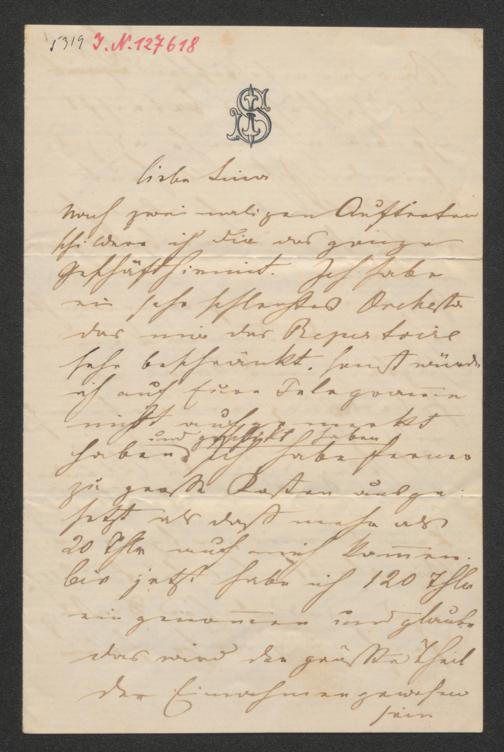 5319 J.N. 127618
JS
liebe Lina
Nach zwei maligen Auftreten
schildere ich Dir das ganze
Geschäft hiermit. Ich habe
ein sehr schlechtes Orchester
das mir das Repertoire
sehr beschränkt. sonst würde
ich auch Eure Telegramme
nicht
und geschickt haben
haben ich habe ferner
zu große Kosten ausge:
setzt als daß mehr als
20 Thlr auf mich kommen.
bis jetzt habe ich 120 Thlr
eingenommen und glaube
das wird der größte Theil
der Einnahmen gewesen
sein